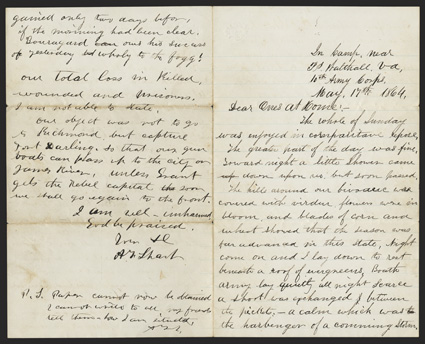 gained only two days before,
if the morning had been clear.
Beauregard can owe his success
of yesterday wholly to the fogg!
our total loss in Killed
wounded and prisoners.
I am not able to state.
Our object was not to go
to Richmond but capture
Fort Darling. So that our gun
boats can pass up to the city on
James River, unless Grant
gets the Rebel capital soon
we shall go again to the front.
I am well - unharmed
God be praised.
P. S. Paper cannot now be obtained
I cannot write to all my friends
tell them how I am situated,
In Camp, near
Va,
Army Corps.
May. 17th 1864,
Dear Ones At Home:-
The whole of Sunday
was enjoyed in comparative repose,
The greater part of the day was fine,
Toward night a little shower came
down upon us, but soon passed,
The hills around our bivouac were
covered with flowers were in
bloom, and blades of corn and
wheat showed that the season was
far advanced in this state, Night
come on and I lay down to rest
beneath a roof of evergreens, Both
army lay quietly all night scarce
a shot was exchanged between
the pickets, - a calm which was to
the harbenger of a comming storm.